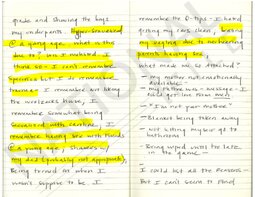 grade and showing the boys
my underpants. Hyper-sexualized
@ a young age. What is this
due to? Was I molested? I
think so - I can't remember
specifics but I do remember
trauma. I remember not liking
the house; I
remember somewhat being
sexualized with; I
remember having sex with friends
@ a young age; showers w/
my dad (probably not appropriate).
Being turned on when I
wasn't suppose to be. I
remember the I hated
getting my ears clean;
my due to
parents having sex.
What made me so
- my mother not emotionally
available -
- my father was - message: I
could get love from men.
- "I'm not your mother"
- Blanket being taken away
- not letting myself go to
bathroom
- Being wiped until too late
in the game -
-
I could list all the reasons
but I can't seem to find